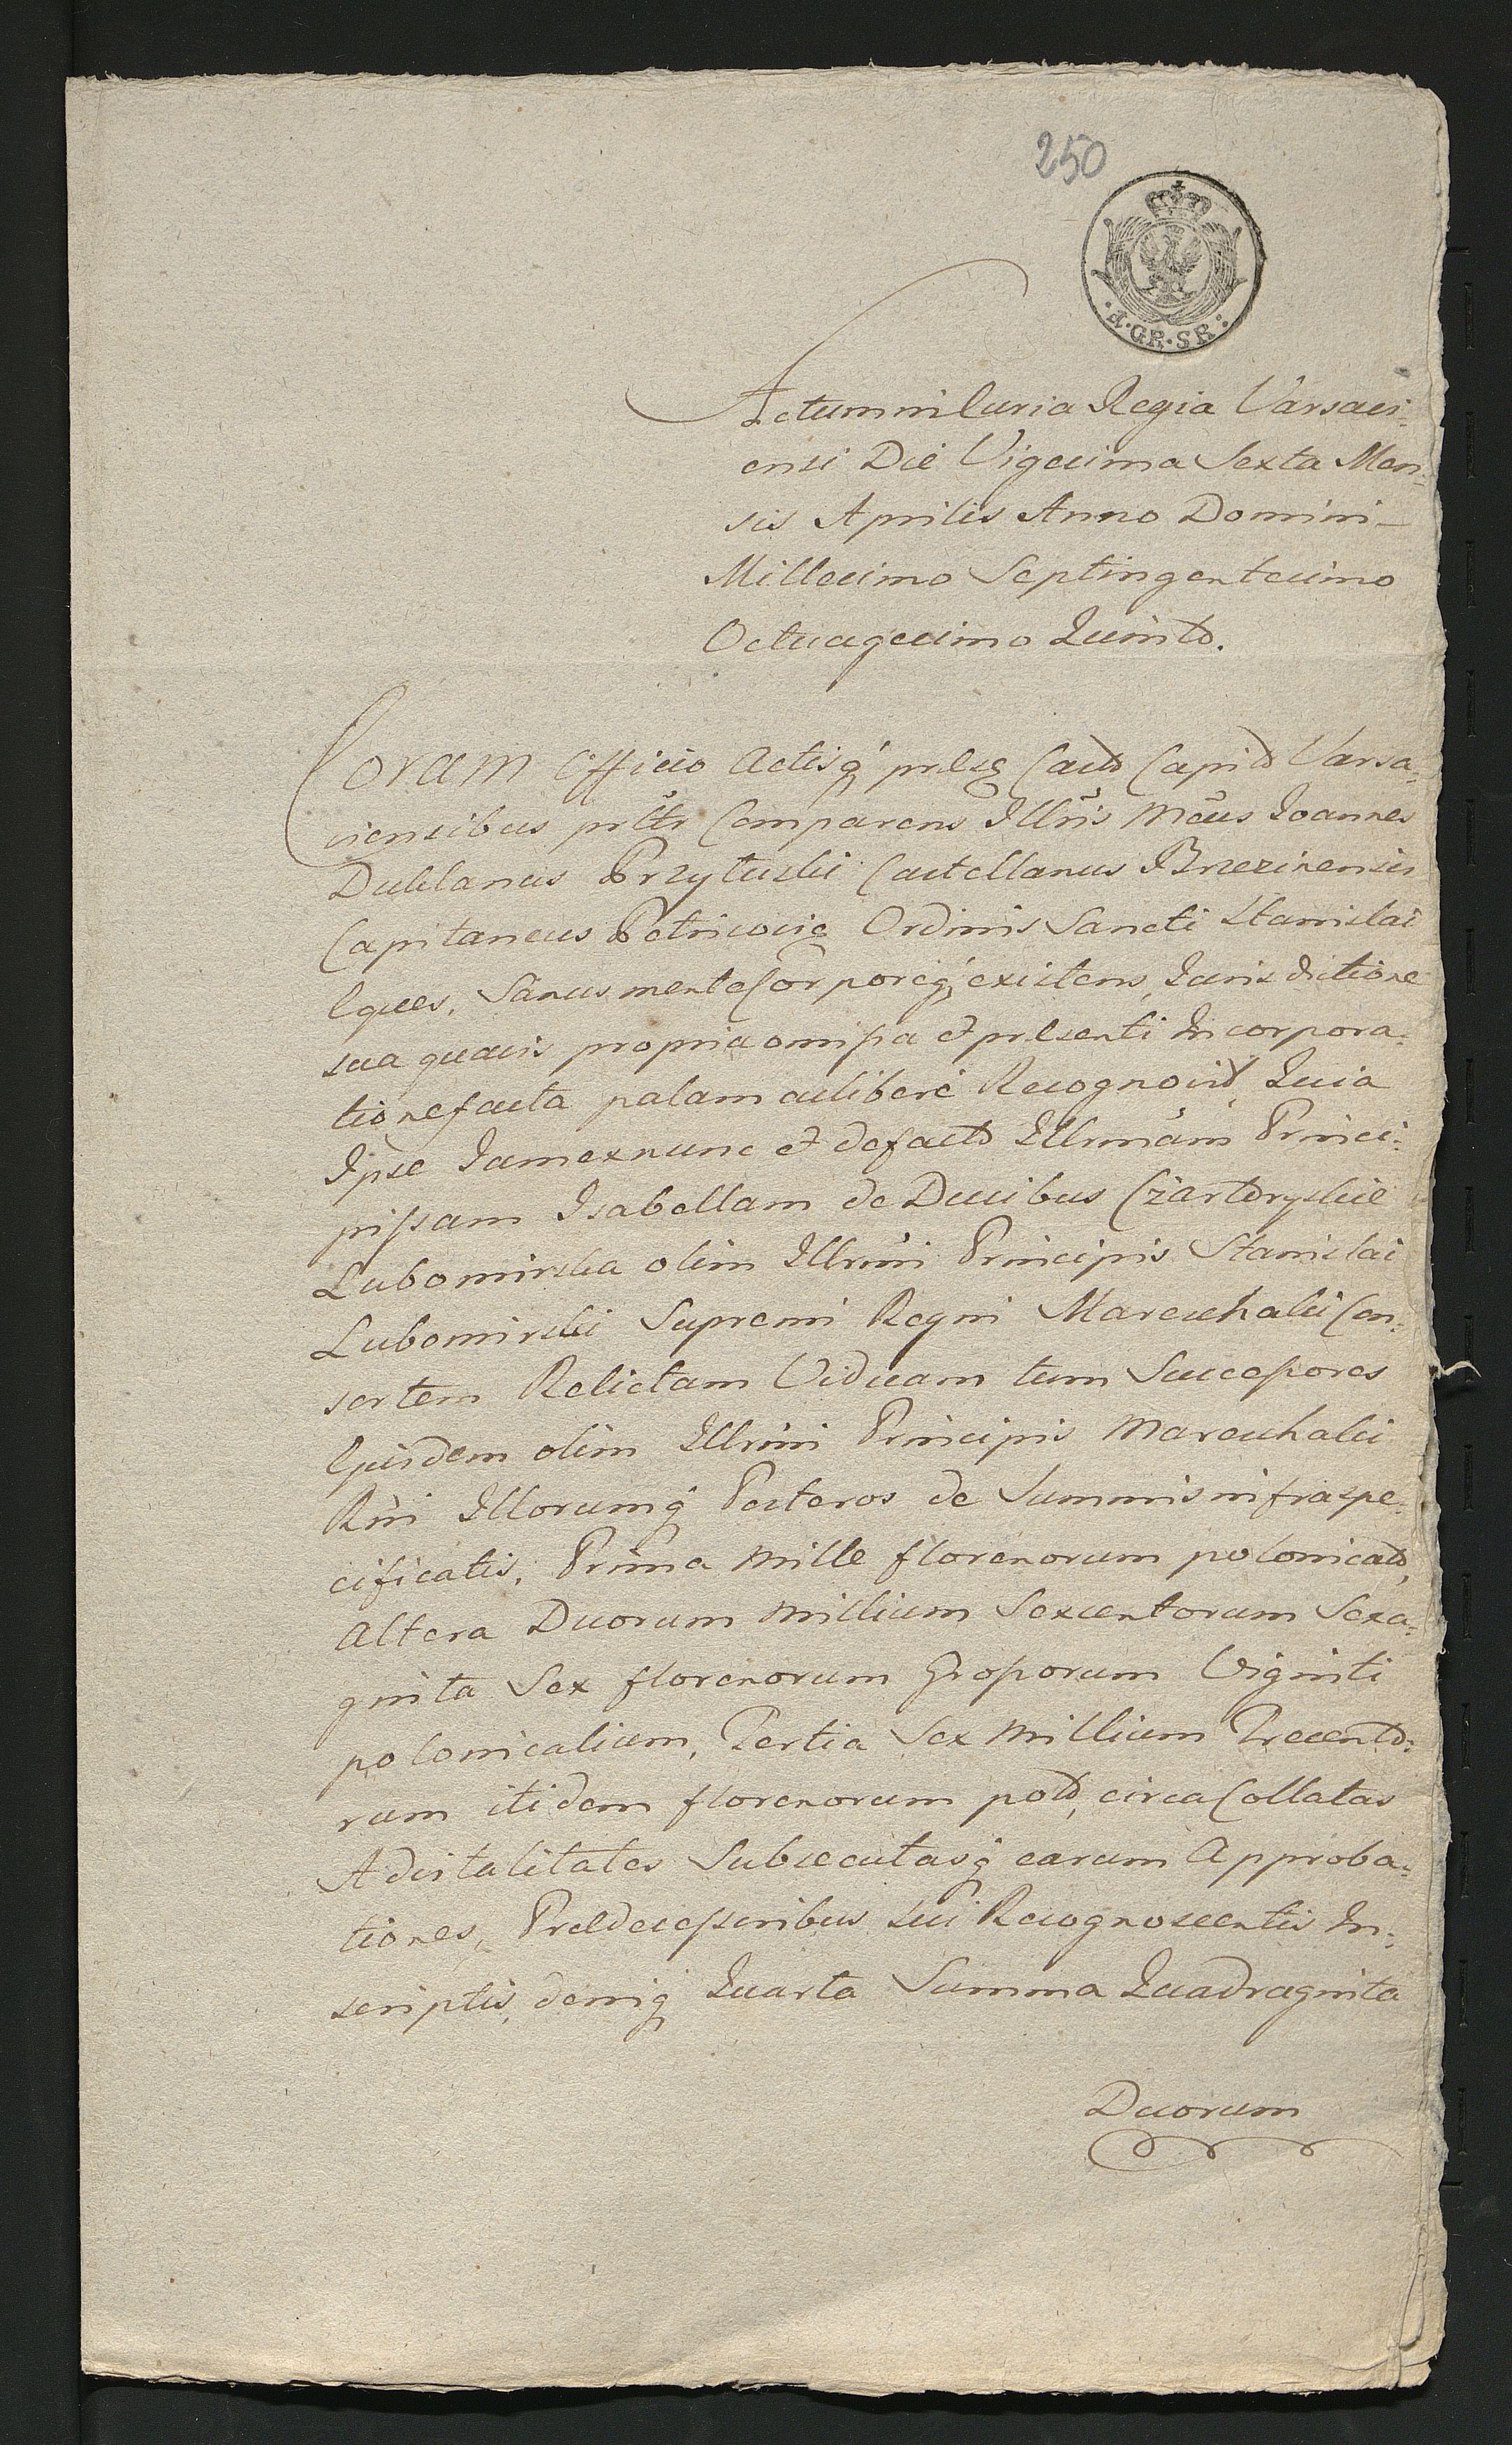 250
·4·GR·SR·
Actum in Curia Regia Varsavi-
ensi Die Vigesima Sexta Men-
sis Aprilis Anno Domini
Millesimo Septingentesimo
Octuagesimo Quinto.
Coram Officio Actisq́ Castr Capit Varsa-
viensibus Comparens Illris Mcus Joannes
Dublanus Przyłuski Castellanus Brzezinensis
Capitaneus Petricoviẽ Ordinis Sancti Stanislai
Eques, Sanus mente Corporeq́ existens, Jurisdictione
sua quavis propria omissa et presenti Incorpora-
tione facta palam ac liberé Recognovit, Quia
Ipse Jam ex nunc et de facto Illrmam Princi-
pissam Isabellam de Ducibus Czartoryskie
Lubomirska olim Illrmi Principis Stanislai
Lubomirski Supremi Regni Mareschalci Con-
sortem Relictam Viduam tum Successores
Ejusdem olim Illrmi Principis Mareschalci
Rni Illorumq́ Posteros de Summis infraspe-
cificatis, Prima Mille florenorum polonicalt,
Altera Duorum Millium Sexcentorum Sexa-
ginta Sex florenorum Grossorum Viginti
polonicalium, Tertia Sex Millium Trecento-
rum itidem florenorum polt, circa Collatas
Advitalitates Subsecutasq́ earum Approba-
tiones, Predecessoribus sui Recognoscentis In-
scriptis, deniq́ Quarta Summa Quadraginta
Duorum